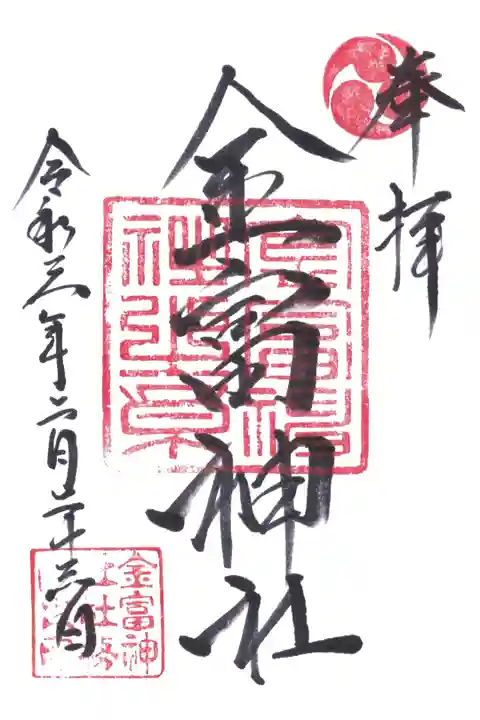 奉拝
金富神社
令和三年二月二十六日
金富神
社之印
金富神
社社務